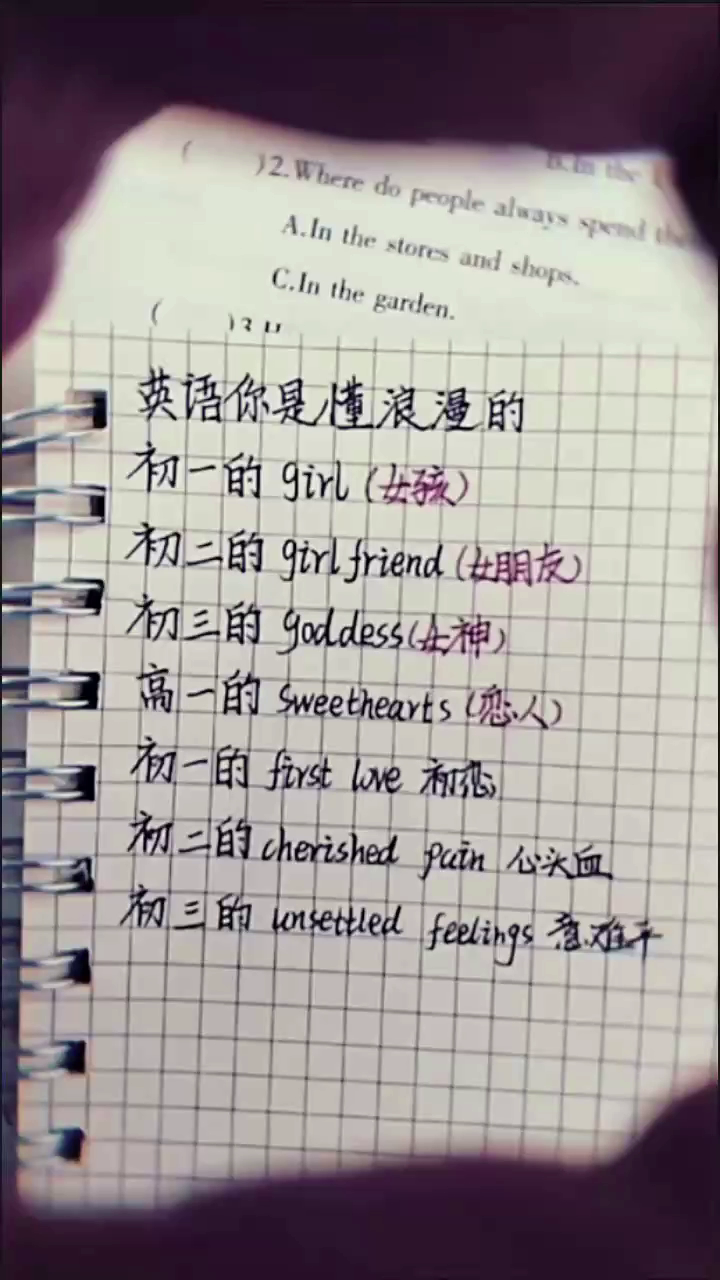 B.In the
( )2.Where do people always spend the
A.In the stores and shops.
C.In the garden.
( )3.
英语你是懂浪漫的
初一的 girl (女孩)
初二的 girlfriend (女朋友)
初三的 goddess (女神)
高一的 sweethearts (恋人)
初一的 first love 初恋
初二的 cherished pain 心头血
初三的 unsettled feelings 意难平